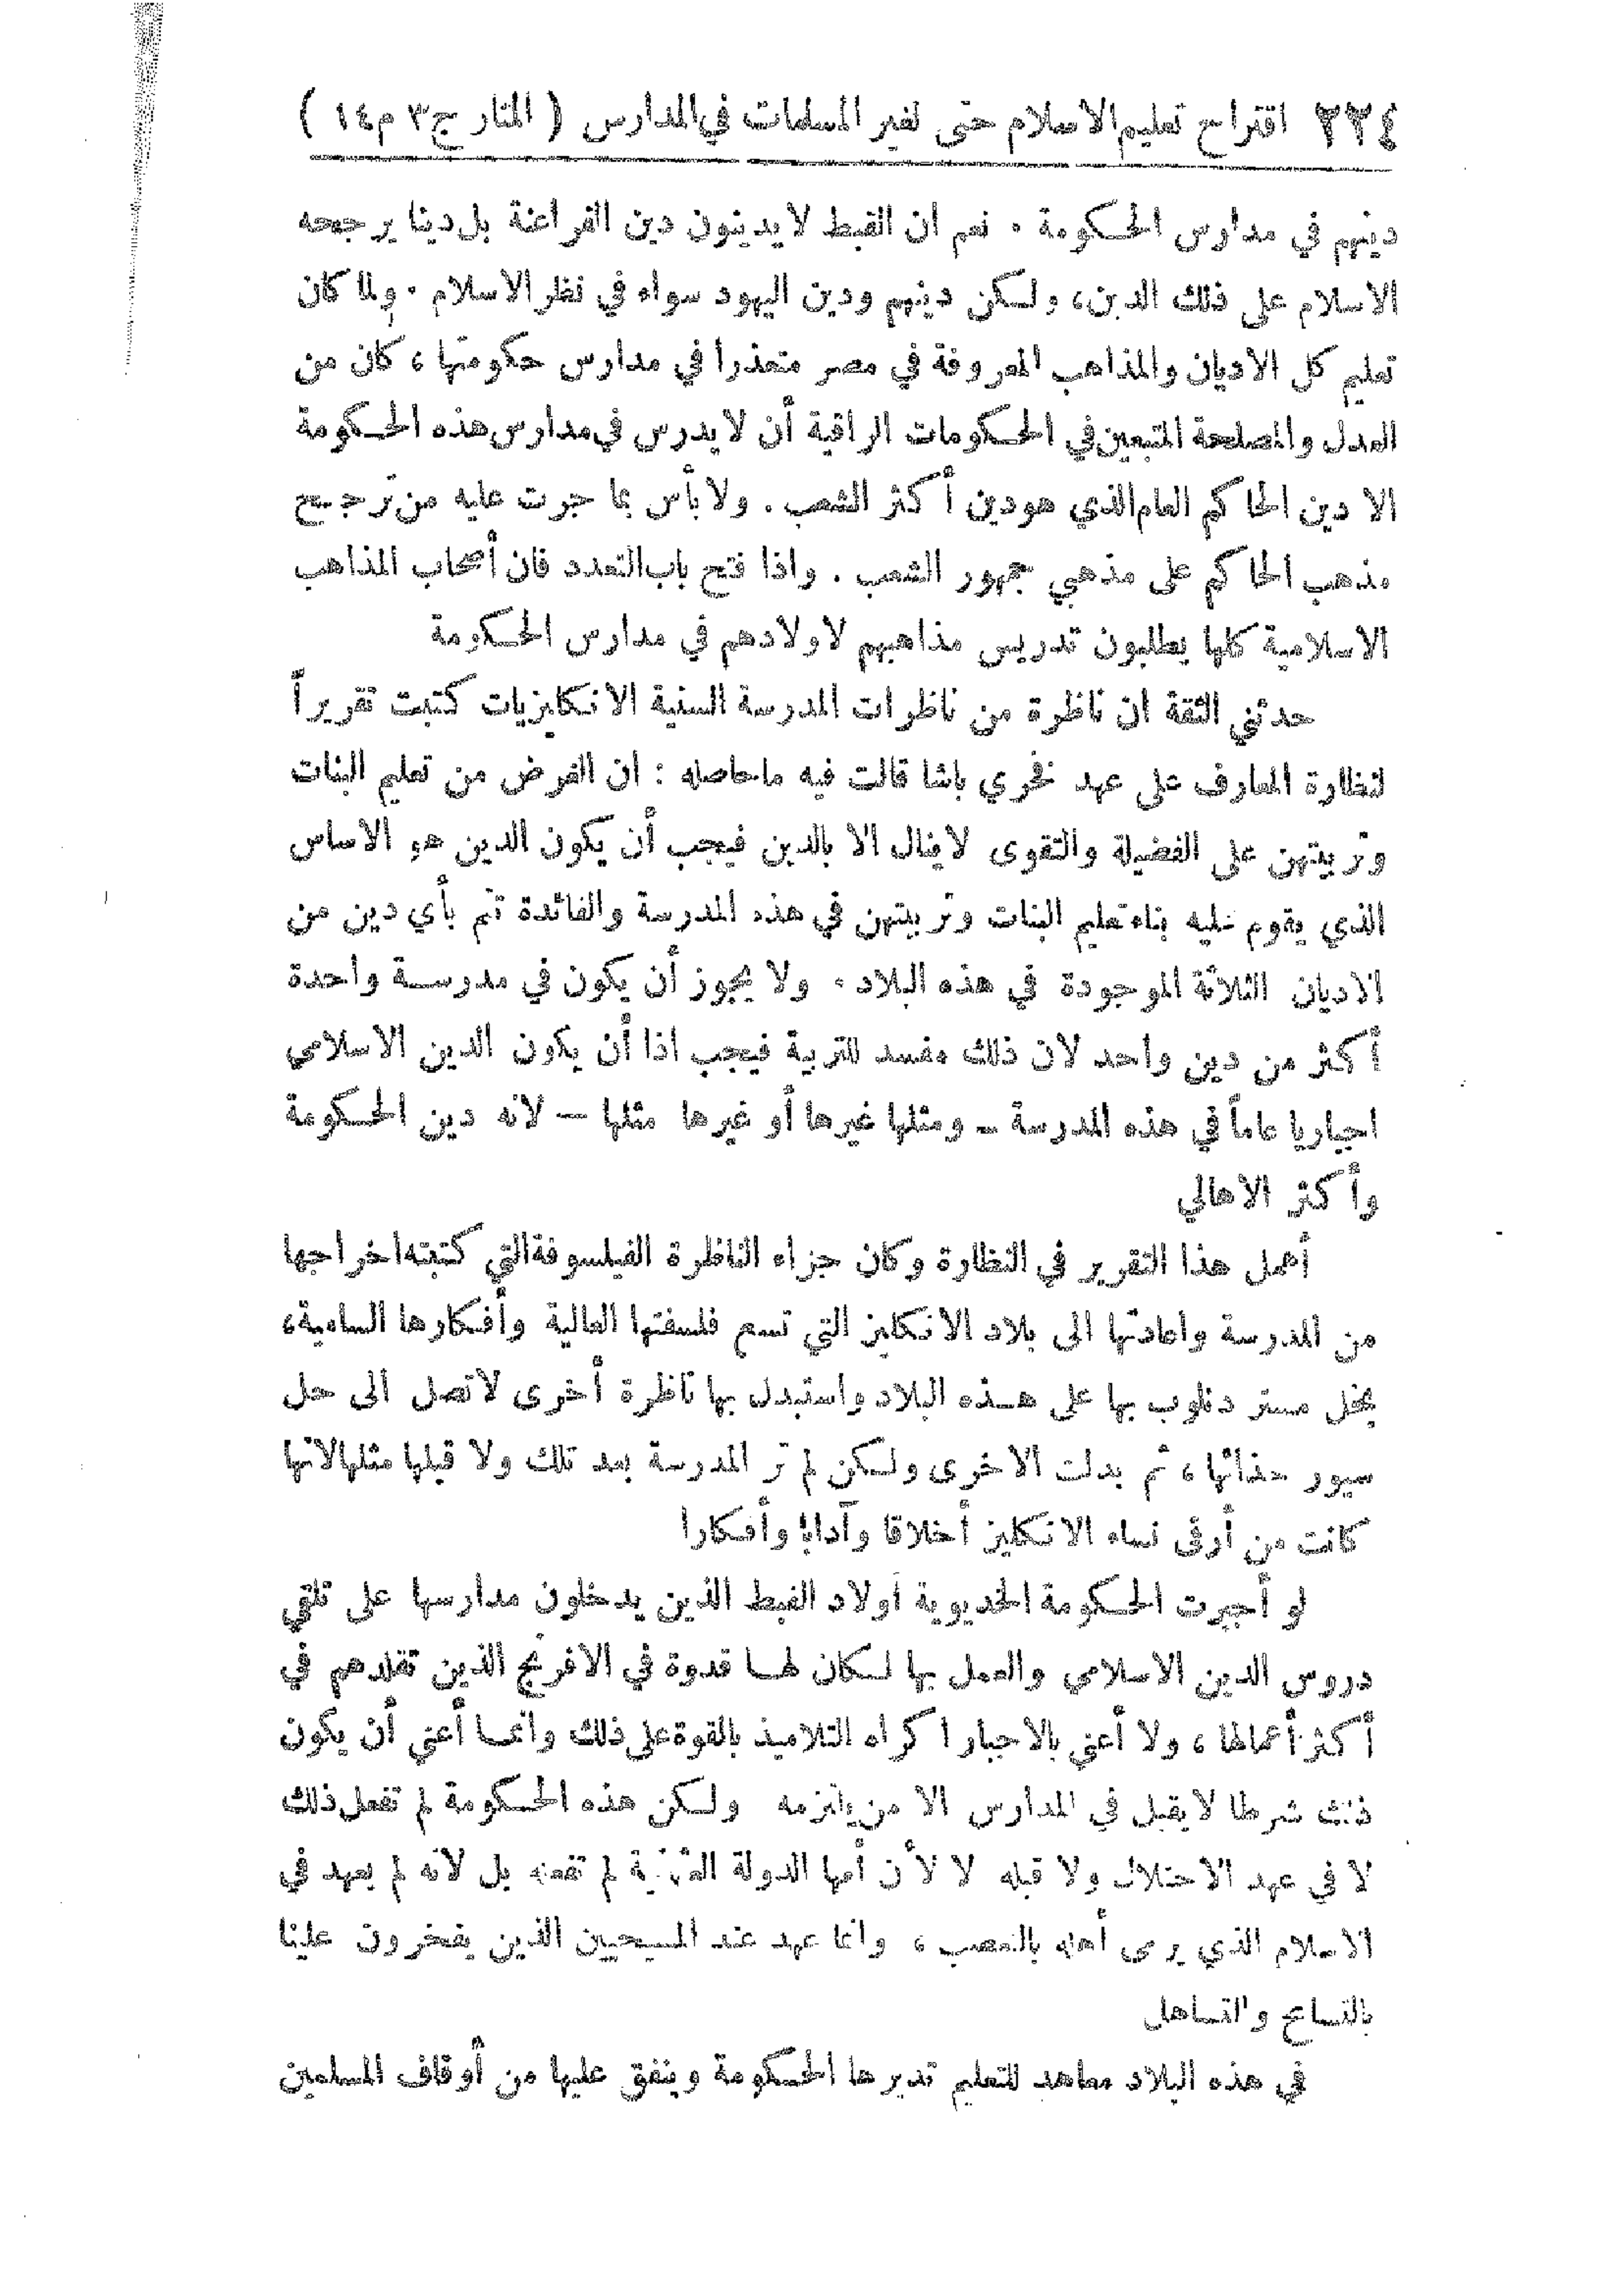 ٢٣٤ اقتراح تعليم الاسلام حتى لغير المسلمات في المدارس ( المنار ج٣ م١٤ )
دينهم في مدارس الحكومة ٠ نعم ان القبط لا يدينون دين الفراعنة بل دينا يرجحه
الاسلام على ذلك الدين، ولكن دينهم ودين اليهود سواء في نظر الاسلام ٠ ولما كان
تعليم كل الاديان والمذاهب المعروفة في مصر متعذرا في مدارس حكومتها ، كان من
العدل والمصلحة المتبعين في الحكومات الراقية أن لا يدرس في مدارس هذه الحكومة
الا دين الحاكم العام الذي هو دين أكثر الشعب . ولا بأس بما جرت عليه من ترجيح
مذهب الحاكم على مذهبي جمهور الشعب . واذا فتح باب التعدد فان أصحاب المذاهب
الاسلامية كلها يطلبون تدريس مذاهبهم لاولادهم في مدارس الحكومة
حدثني الثقة ان ناظرة من ناظرات المدرسة السنية الانكليزيات كتبت تقريراً
لنظارة المعارف على عهد فخري باشا قالت فيه ما حاصله : ان الغرض من تعليم البنات
وتربيتهن على الفضيلة والتقوى لا ينال الا بالدين فيجب أن يكون الدين هو الاساس
الذي يقوم عليه بناء تعليم البنات وتربيتهن في هذه المدرسة والفائدة تتم بأي دين من
الاديان الثلاثة الموجودة في هذه البلاد ٠ ولا يجوز أن يكون في مدرسة واحدة
أكثر من دين واحد لان ذلك مفسد للتربية فيجب اذا أن يكون الدين الاسلامي
اجباريا عاماً في هذه المدرسة - ومثلها غيرها أو غيرها مثلها — لانه دين الحكومة
وأكثر الاهالي
أهمل هذا التقرير في النظارة وكان جزاء الناظرة الفيلسوفة التي كتبته اخراجها
من المدرسة واعادتها الى بلاد الانكليز التي تسع فلسفتها العالية وأفكارها السامية،
بخل مستر دنلوب بها على هذه البلاد واستبدل بها ناظرة أخرى لا تصل الى حل
سيور حذائها ، ثم بدلت الاخرى ولكن لم تر المدرسة بعد تلك ولا قبلها مثلها لانها
كانت من أرقى نساء الانكليز أخلاقا وآدابا وأفكارا
لو أجبرت الحكومة الخديوية أولاد القبط الذين يدخلون مدارسها على تلقي
دروس الدين الاسلامي والعمل بها لكان لها قدوة في الافرنج الذين تقلدهم في
أكثر أعمالها ، ولا أعني بالاجبار اكراه التلاميذ بالقوة على ذلك وانما أعني أن يكون
ذلك شرطا لا يقبل في المدارس الا من يلتزمه ولكن هذه الحكومة لم تفعل ذلك
لا في عهد الاحتلال ولا قبله لا لأن أمها الدولة العثمانية لم تفعله بل لانه لم يعهد في
الاسلام الذي يرمى أهله بالتعصب ، وانما عهد عند المسيحيين الذين يفخرون علينا
بالتسامح والتساهل
في هذه البلاد معاهد للتعليم تديرها الحكومة وينفق عليها من أوقاف المسلمين